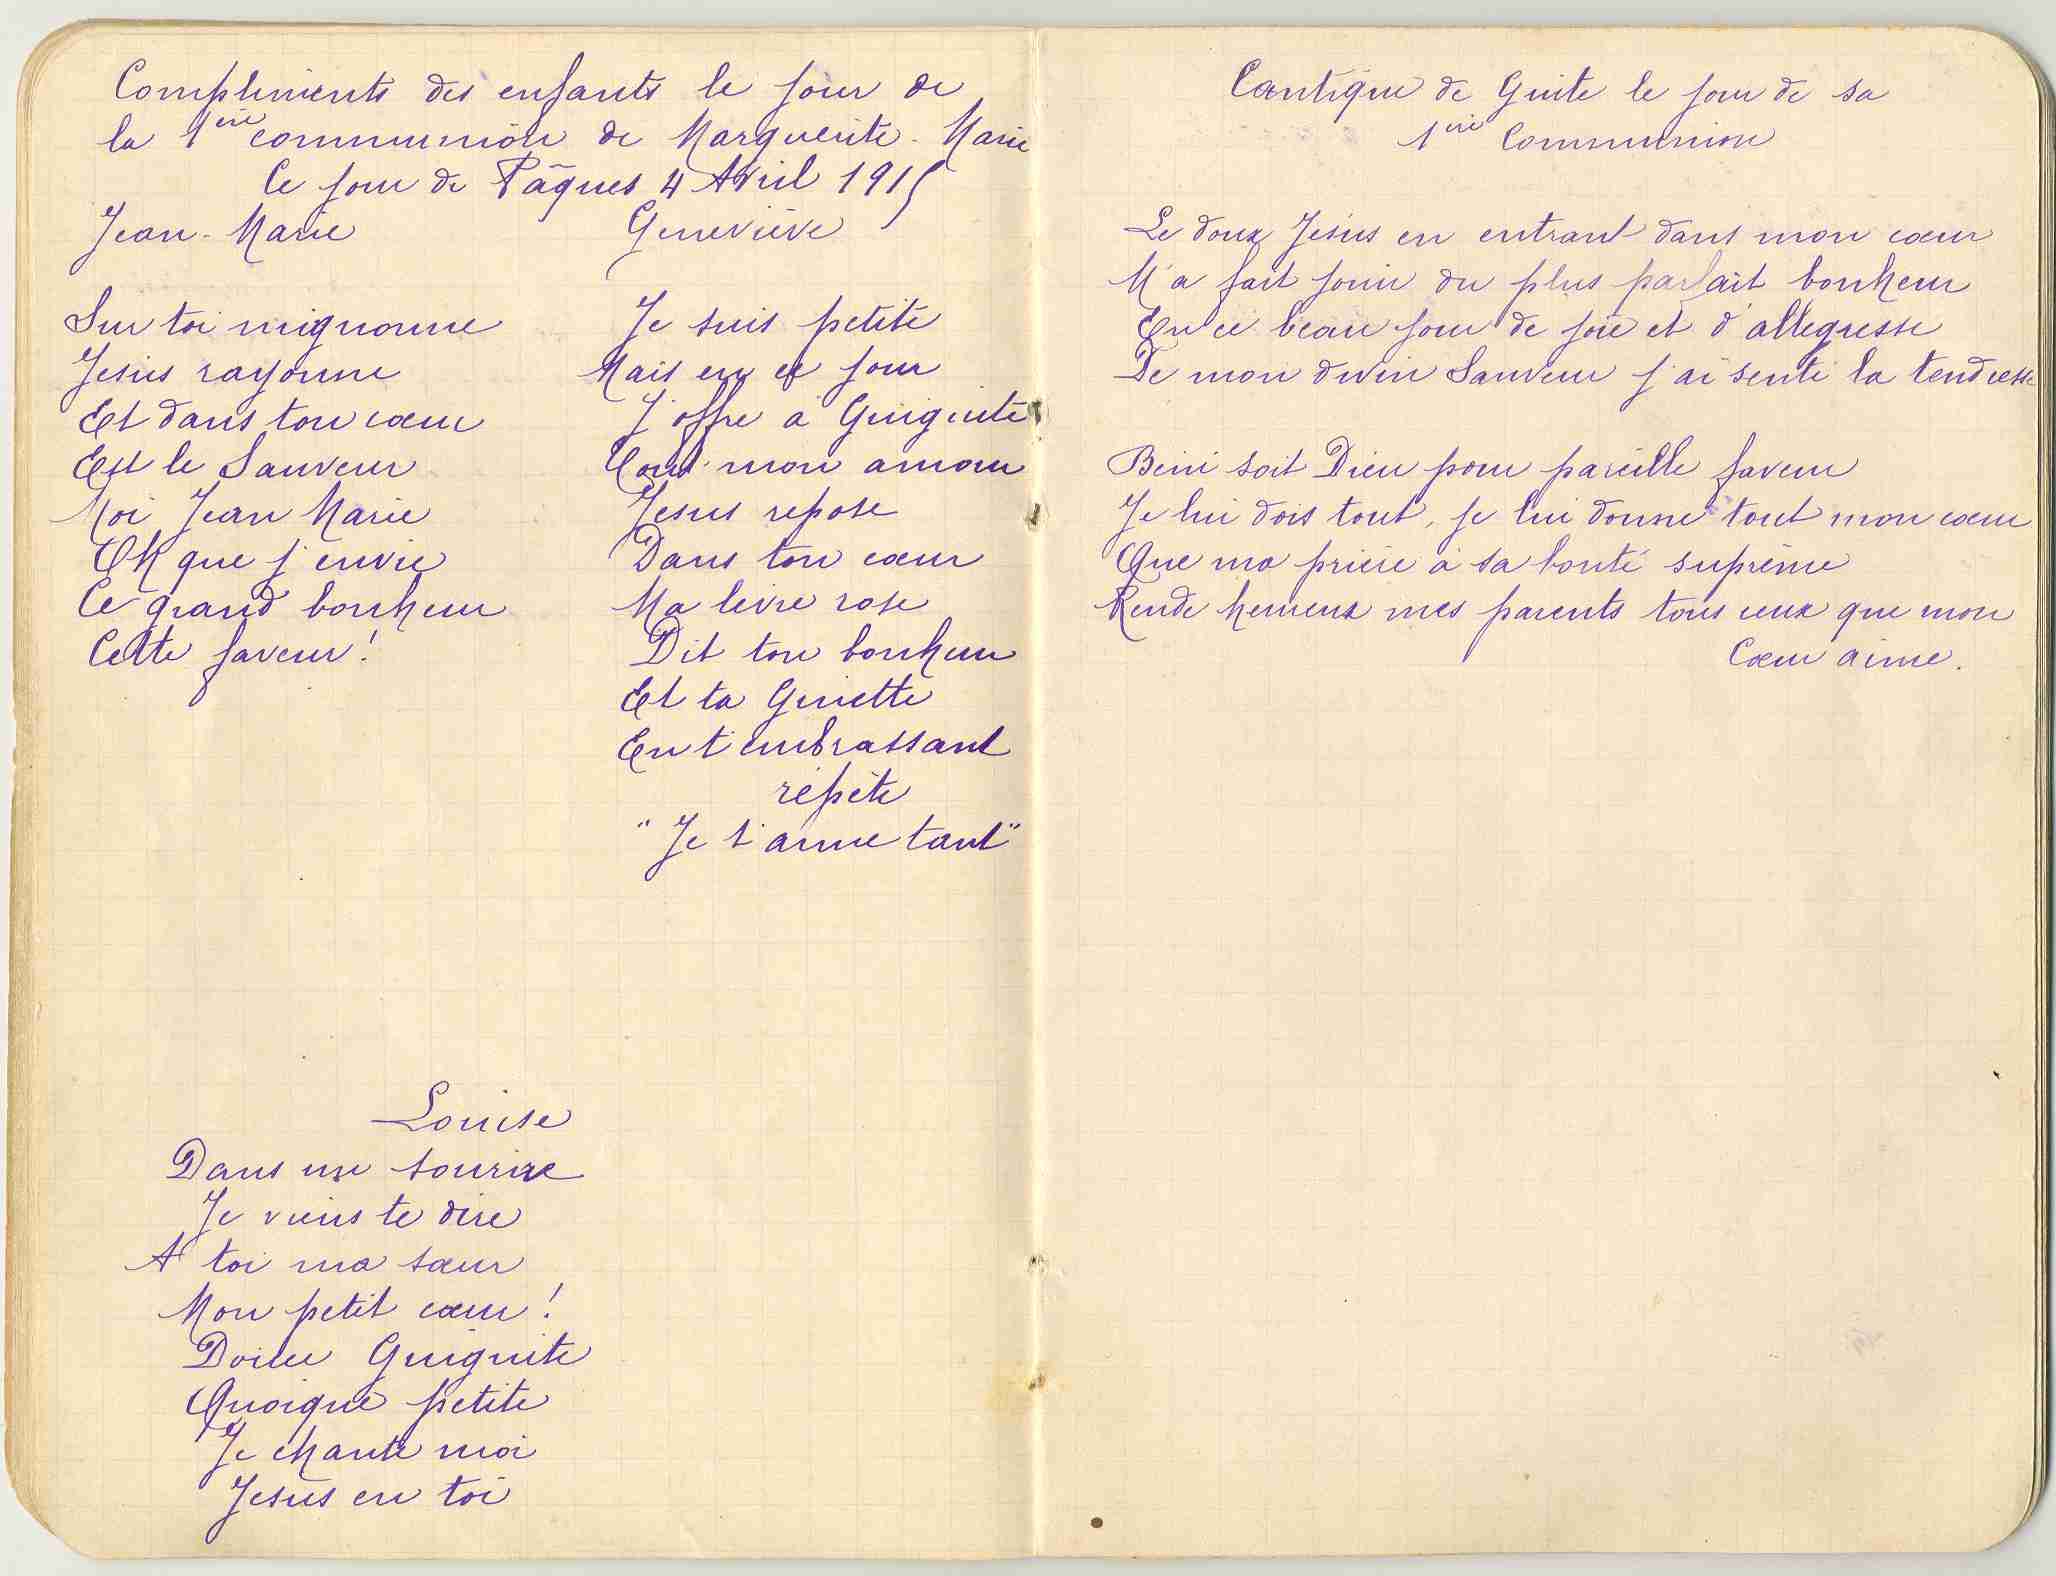 Compliments des enfants le jour de
la 1ère communion de Marguerite-Marie
Ce jour de Pâques 4 Avril 1915
Jean-Marie
Sur toi mignonne
Jésus rayonne
Et dans ton cœur
Est le Sauveur
Moi Jean Marie
Oh que j'envie
Ce grand bonheur
Cette faveur!
Geneviève
Je suis petite
Mais en ce jour
J'offre à Guiguite
Tout mon amour
Jesus repose
Dans ton cœur
Ma lèvre rose
Dit ton bonheur
Et ta Ginette
En t'embrassant
répète
"Je t'aime tant"
Louise
Dans un sourire
Je viens te dire
A toi ma sœur
Mon petit cœur!
Douce Guiguite
Quoique petite
Je chante moi
Jesus en toi
Cantique de Guite le jour de sa
1ère Communion
Le doux Jésus en entrant dans mon cœur
M'a fait jouir du plus parfait bonheur
En ce beau jour de joie et d'allegresse
De mon divin Sauveur j'ai senti la tendresse
Béni soit Dieu pour pareille faveur
Je lui dois tout, je lui donne tout mon cœur
Que ma prière à sa bonté suprême
Rende heureux mes parents tous ceux que mon
Cœur aime.